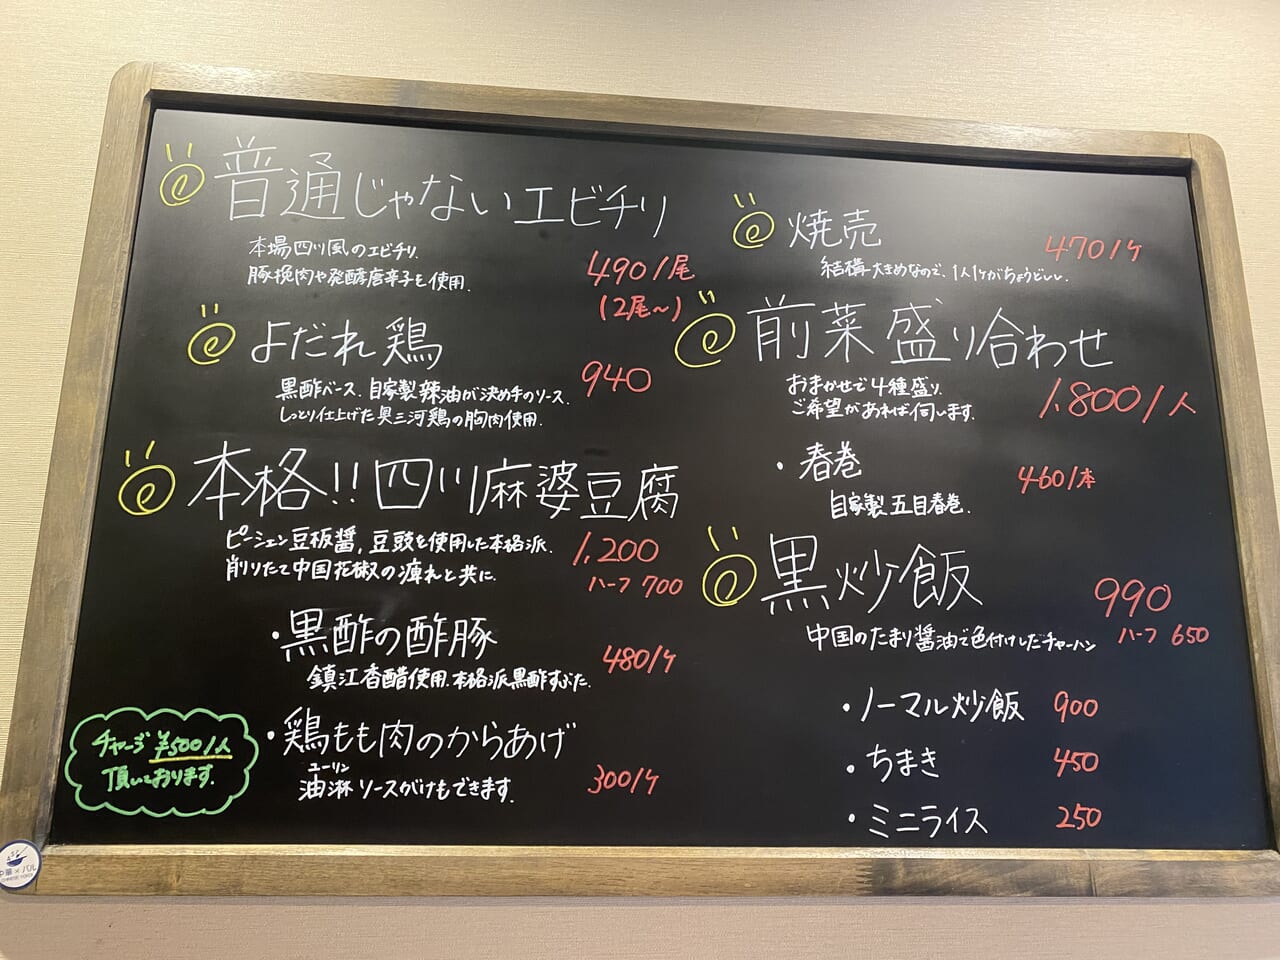 普通じゃないエビチリ
本場四川風のエビチリ.
豚挽肉や発酵唐辛子を使用.
490/尾
(2尾～)
よだれ鶏
940
黒酢ベース. 自家製辣油が決め手のソース.
しっとり仕上げた奥三河鶏の胸肉使用.
本格!!四川麻婆豆腐
ピーシェン豆板醤, 豆豉を使用した本格派.
削りたて中国花椒の痺れと共に.
1,200
ハーフ 700
・黒酢の酢豚
480/ケ
鎮江香醋使用.本格派黒酢すぶた.
・鶏もも肉のからあげ
ユーリン
油淋ソースがけもできます.
300/ケ
チャージ ¥500/人
頂いております.
焼売
470/ケ
結構大きめなので、1人1ケがちょうどいい.
前菜盛り合わせ
おまかせで4種盛り.
ご希望があれば伺います.
1,800/人
・春巻
460/本
自家製五目春巻.
黒炒飯
990
ハーフ 650
中国のたまり醤油で色付けしたチャーハン
・ノーマル炒飯 900
・ちまき 450
・ミニライス 250
中華×バル